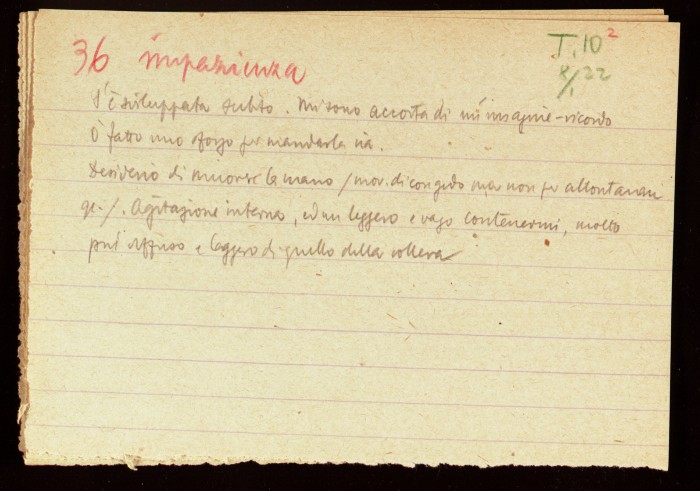 36 impazienza
J.10²
8/1 22
S'è sviluppata subito. Mi sono accorta di un'imagine-ricordo
Ò fatto uno sforzo per mandarla via.
Desiderio di muovere la mano /mov. di congedo ma non per allontanare
ge./. Agitazione interna, ed un leggero e vago contenermi, molto
più diffuso e leggero di quello della collera